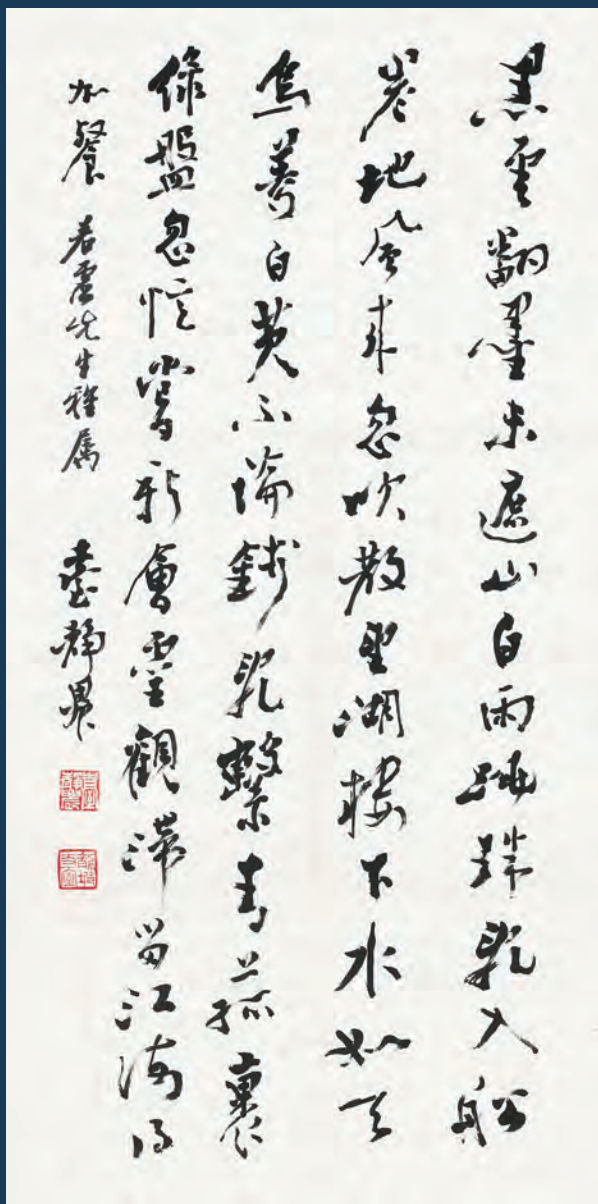 黑雲翻墨未遮山白雨跳珠亂入船
卷地風來忽吹散望湖樓下水如天
烏菱白芡不論錢亂繫青菰裹
綠盤忽憶嘗新會靈觀滯留江海得
加餐 先生雅屬 臺靜農